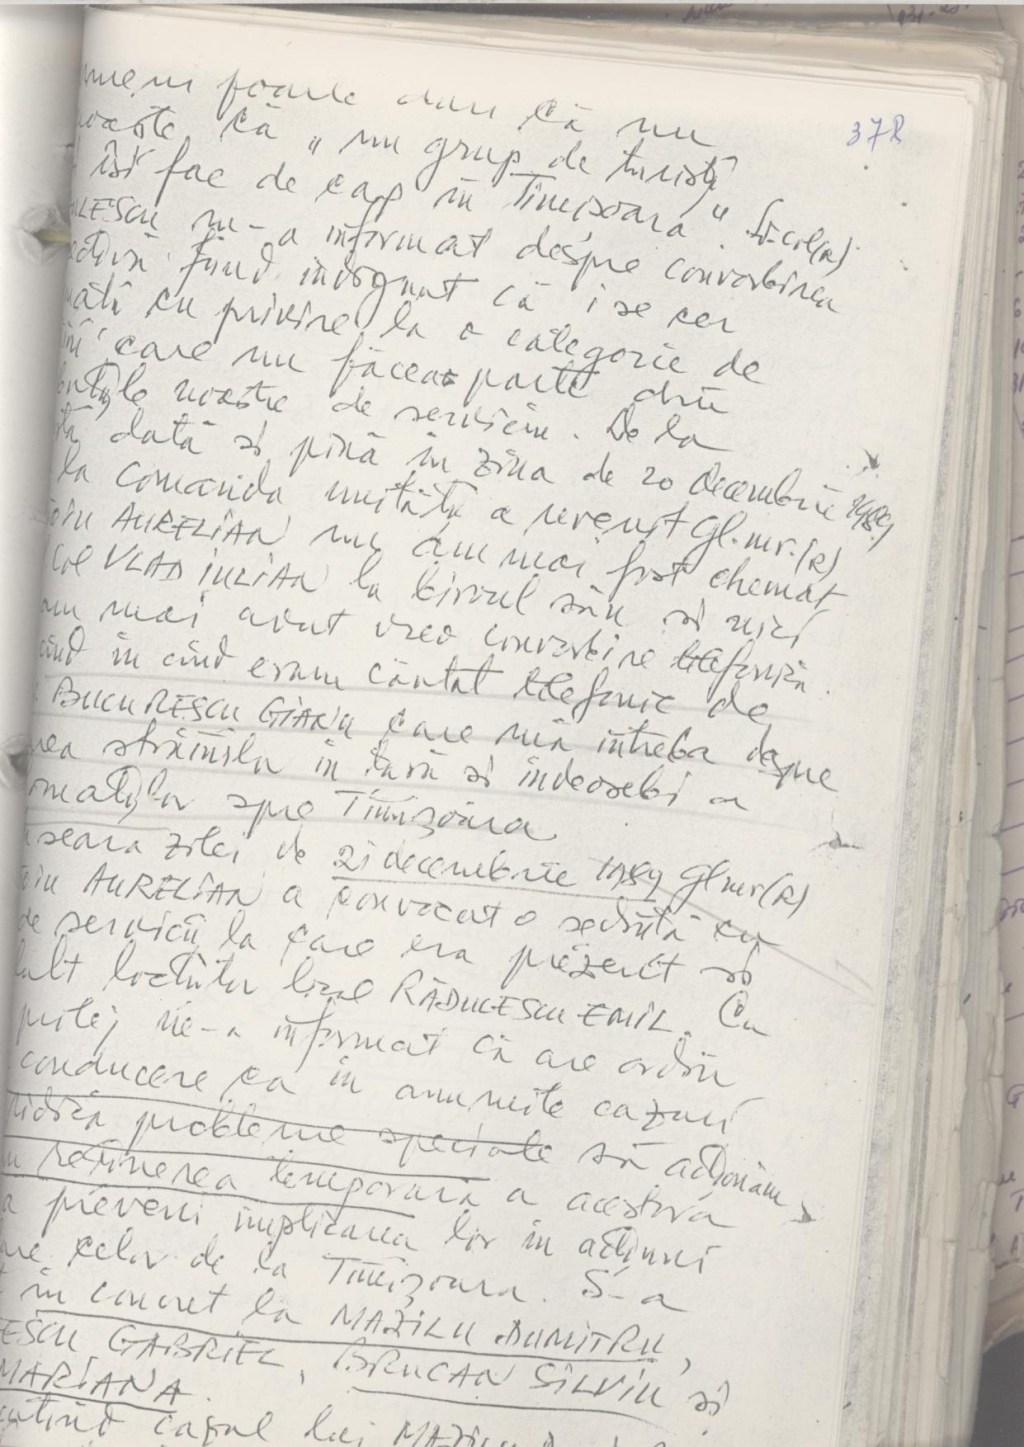 378
foarte clar că nu
că „ un grup de turişti
îşi fac de cap în Timişoara". Lt.col(R)
ULESCU m-a informat despre convorbirea
fiind indignat că i se cer
cu privire la o categorie de
care nu făcea parte din
noastre de serviciu. De la
dată şi pînă în ziua de 20 decembrie 1989
la comanda unităţii a revenit Gl.mr.(R)
AURELIAN nu am mai fost chemat
col VLAD IULIAN la biroul său şi nici
am mai avut vreo convorbire telefonică.
cînd în cînd eram căutat telefonic de
BUCURESCU GIANU care mă întreba despre
străinilor în ţară şi îndeosebi a
spre Timişoara
seara zilei de 21 decembrie 1989 Gl.mr(R)
AURELIAN a convocat o şedinţă cu
de servicii la care era prezent şi
locţiitor RĂDULESCU EMIL. Cu
prilej ne-a informat că are ordin
conducere ca în anumite cazuri
ridică probleme speciale să acţionăm
reţinerea temporară a acestora
a preveni implicarea lor în acţiuni
celor de la Timişoara. S-a
în concret la MAZILU DUMITRU,
ESCU GABRIEL, BRUCAN SILVIU şi
MARIANA.
cazul lui